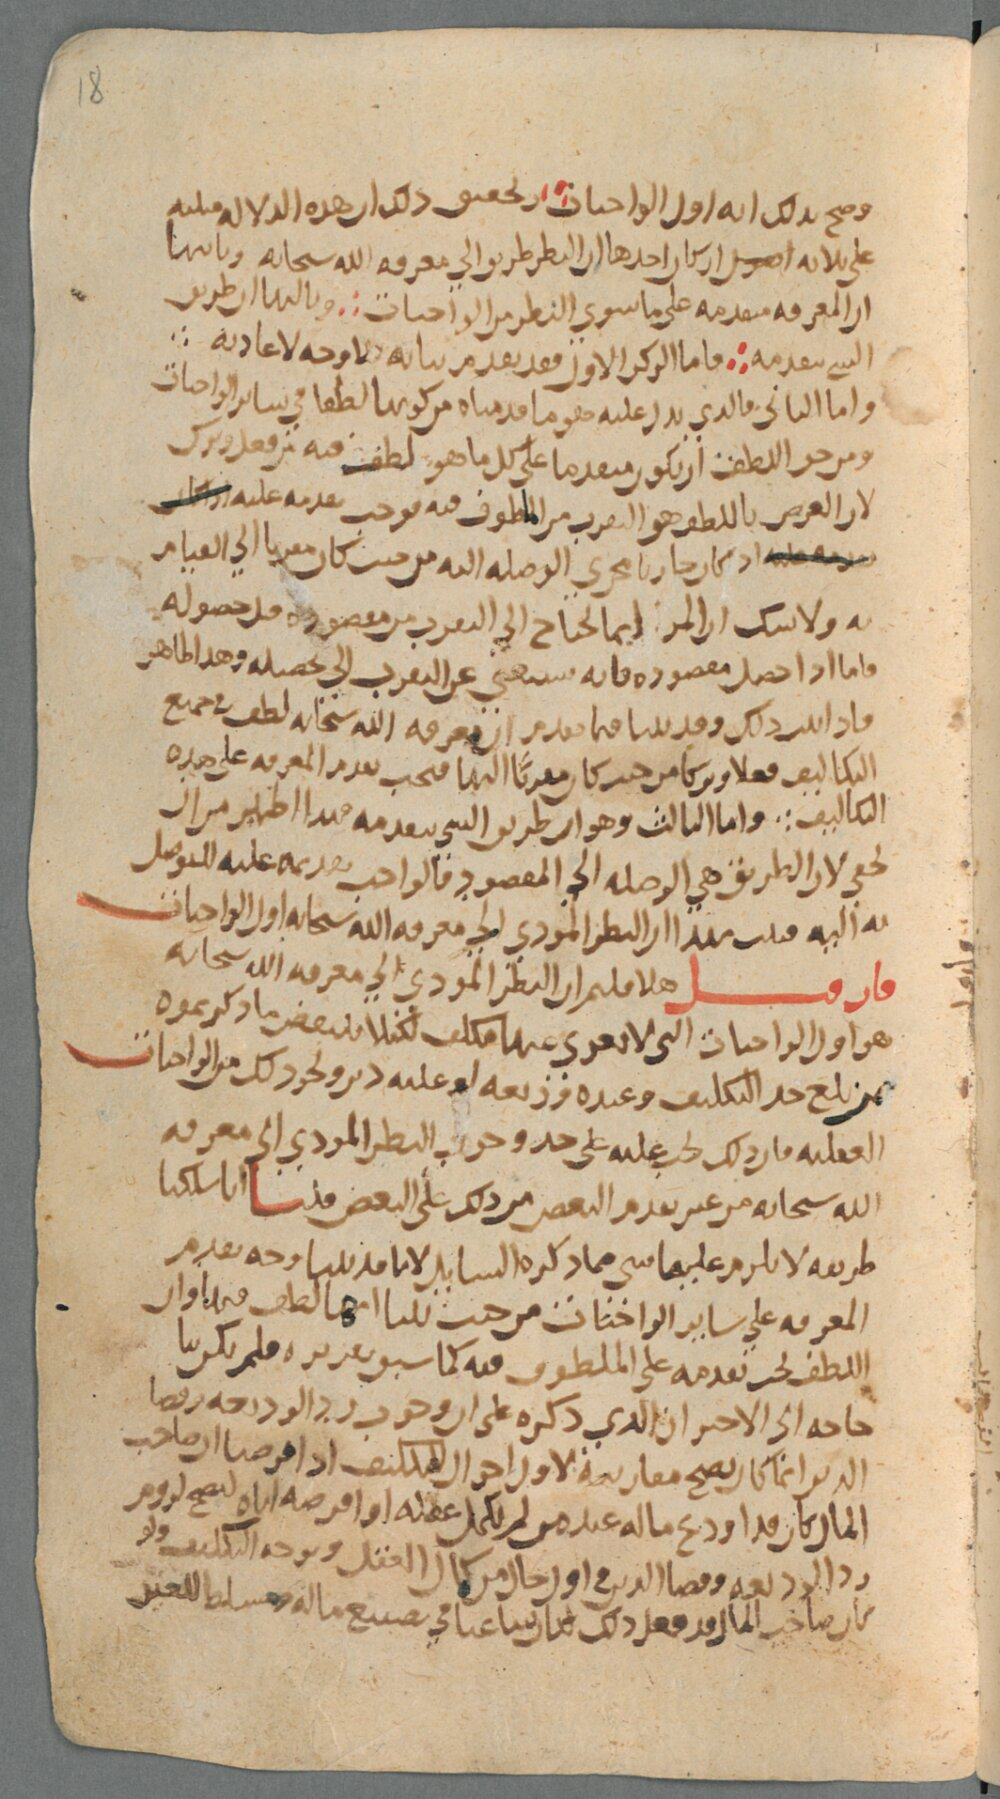 18
وصح بذلك انه اول الواجبات وتحقيق ذلك ان هذه الدلاله مبنيه
على ثلاثه اركان احدها ان النظر طريق الى معرفه الله سبحانه وثانيها
ان المعرفه متقدمه على ما سوى النظر من الواجبات وثالثها ان طريق
الشي يتقدمه فاما الركن الاول فقد تقدم بيانه ولا وجه لاعادته
واما الثاني فالذي يدل عليه هو ما قدمناه من كونها لطفا في ساير الواجبات
ومن حق اللطف ان يكون متقدما على كل ما هو لطف فيه من فعل وترك
لان الغرض باللطف هو التقرب من الملطوف فيه فوجب تقدمه عليه
اذ كان جاريا مجرى الوصله اليه من حيث كان مقربا الى القيام
به ولا شك ان المرء انما يحتاج الى التقرب من مقصوده قبل حصوله
فاما اذا حصل مقصوده فانه يستغني عن التقرب الى تحصيله وهذا ظاهر
فاذا ثبت ذلك وقد بينا فيما تقدم ان معرفه الله سبحانه لطف في جميع
التكاليف فعلا وتركا من حيث كان مقربا اليها فيجب تقدم المعرفه على هذه
التكاليف واما الثالث وهو ان طريق الشي يتقدمه فهذا اظهر من ان
يخفى لان الطريق هي الوصله الى المقصود فالواجب تقديمه عليه للتوصل
به اليه فثبت بهذا ان النظر المودي الى معرفه الله سبحانه اول الواجبات
فان قيل هلا قلتم ان النظر المودي الى معرفه الله سبحانه
هو اول الواجبات التي لا يعرى عنها مكلف لئلا ينتقض ما ذكرتموه
بمن بلغ حد التكليف وعنده وديعه او عليه دين ونحو ذلك من الواجبات
العقليه فان ذلك يجب عليه على حد وجوب النظر المودي الى معرفه
الله سبحانه من غير تقدم البعض من ذلك على البعض قلنا انا سلكنا
طريقه لا يلزم عليها شي مما ذكره السايل لانا قد بينا وجه تقدم
المعرفه على ساير الواجبات من حيث بينا انها لطف فيها وان
اللطف يجب تقدمه على الملطوف فيه كما سبق تقريره فلم يكن بنا
حاجه الى الاحتراز الذي ذكره على ان وجوب رد الوديعه وقضا
الدين انما كان يصح مقارنته لاول احوال التكليف اذا فرضنا ان صاحب
المال كان قد اودع ماله عند من لم يكمل عقله او اقرضه اياه ليصح لزوم
رد الوديعه وقضا الدين في اول حال من كمال العقل وتوجه التكليف ولو
كان صاحب المال قد فعل ذلك لكان ساعيا في تضييع ماله ومسلطا للغير